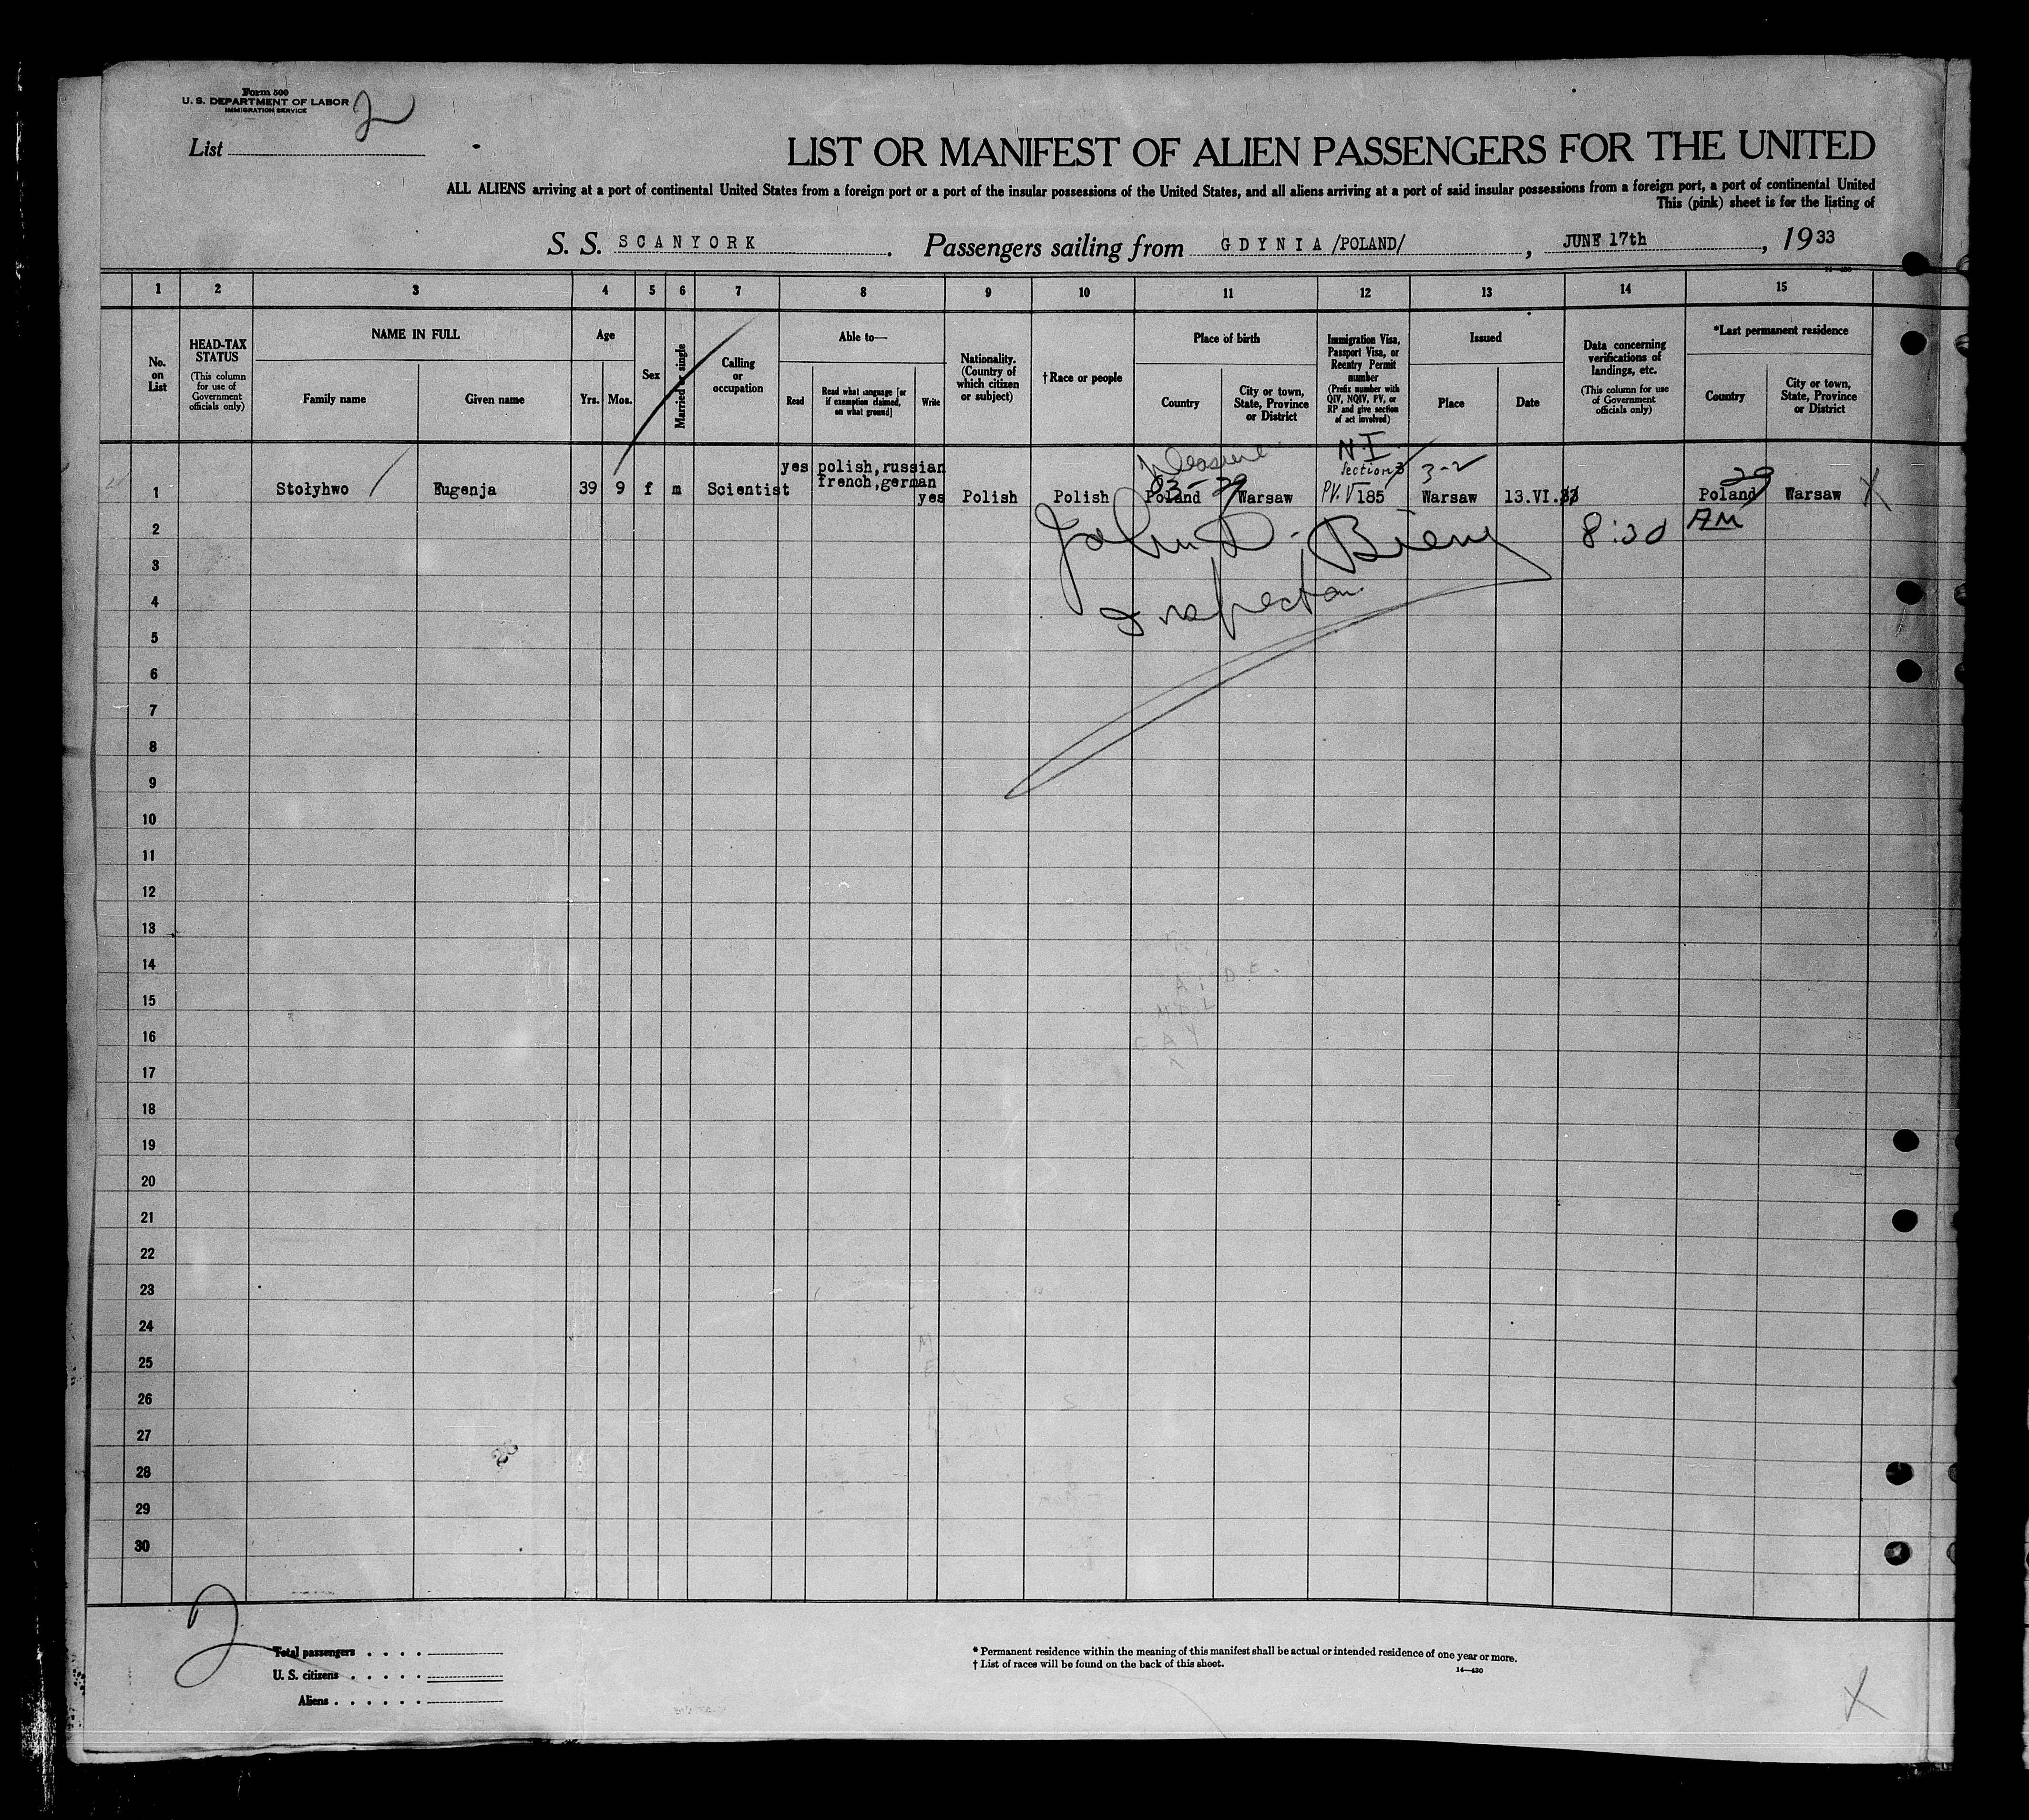 Form 500
U. S. DEPARTMENT OF LABOR
IMMIGRATION SERVICE
2
List
LIST OR MANIFEST OF ALIEN PASSENGERS FOR THE UNITED
ALL ALIENS arriving at a port of continental United States from a foreign port or a port of the insular possessions of the United States, and all aliens arriving at a port of said insular possessions from a foreign port, a port of continental United
This (pink) sheet is for the listing of
S. S. SCANYORK. Passengers sailing from GDYNIA /POLAND/, JUNE 17th, 1933
1 2 3 4 5 6 7 8 9 10 11 12 13 14 15
No. on List
HEAD-TAX STATUS
(This column for use of Government officials only)
NAME IN FULL
Family name
Given name
Age
Yrs.
Mos.
Sex
Married or single
Calling or occupation
Able to—
Read
Read what language [or if exemption claimed, on what ground]
Write
Nationality. (Country of which citizen or subject)
† Race or people
Place of birth
Country
City or town, State, Province or District
Immigration Visa, Passport Visa, or Reentry Permit number
(Prefix number with QIV, NQIV, PV, or RP and give section of act involved)
Issued
Place
Date
Data concerning verifications of landings, etc.
(This column for use of Government officials only)
*Last permanent residence
Country
City or town, State, Province or District
pleasure N.I.
yes polish, russian Section 3 3-2 29
french, german 03-29
1 Stołyhwo Eugenja 39 9 f m Scientist yes Polish Polish Poland Warsaw PV. V 185 Warsaw 13.VI.33 Poland Warsaw X
2 John D. 8:30 AM
3
4 Inspector
5
6
7
8
9
10
11
12
13
14
15
16
17
18
19
20
21
22
23
24
25
26
27
28
29
30
2
Total passengers
U. S. citizens
Aliens
* Permanent residence within the meaning of this manifest shall be actual or intended residence of one year or more.
† List of races will be found on the back of this sheet.
14—430
X